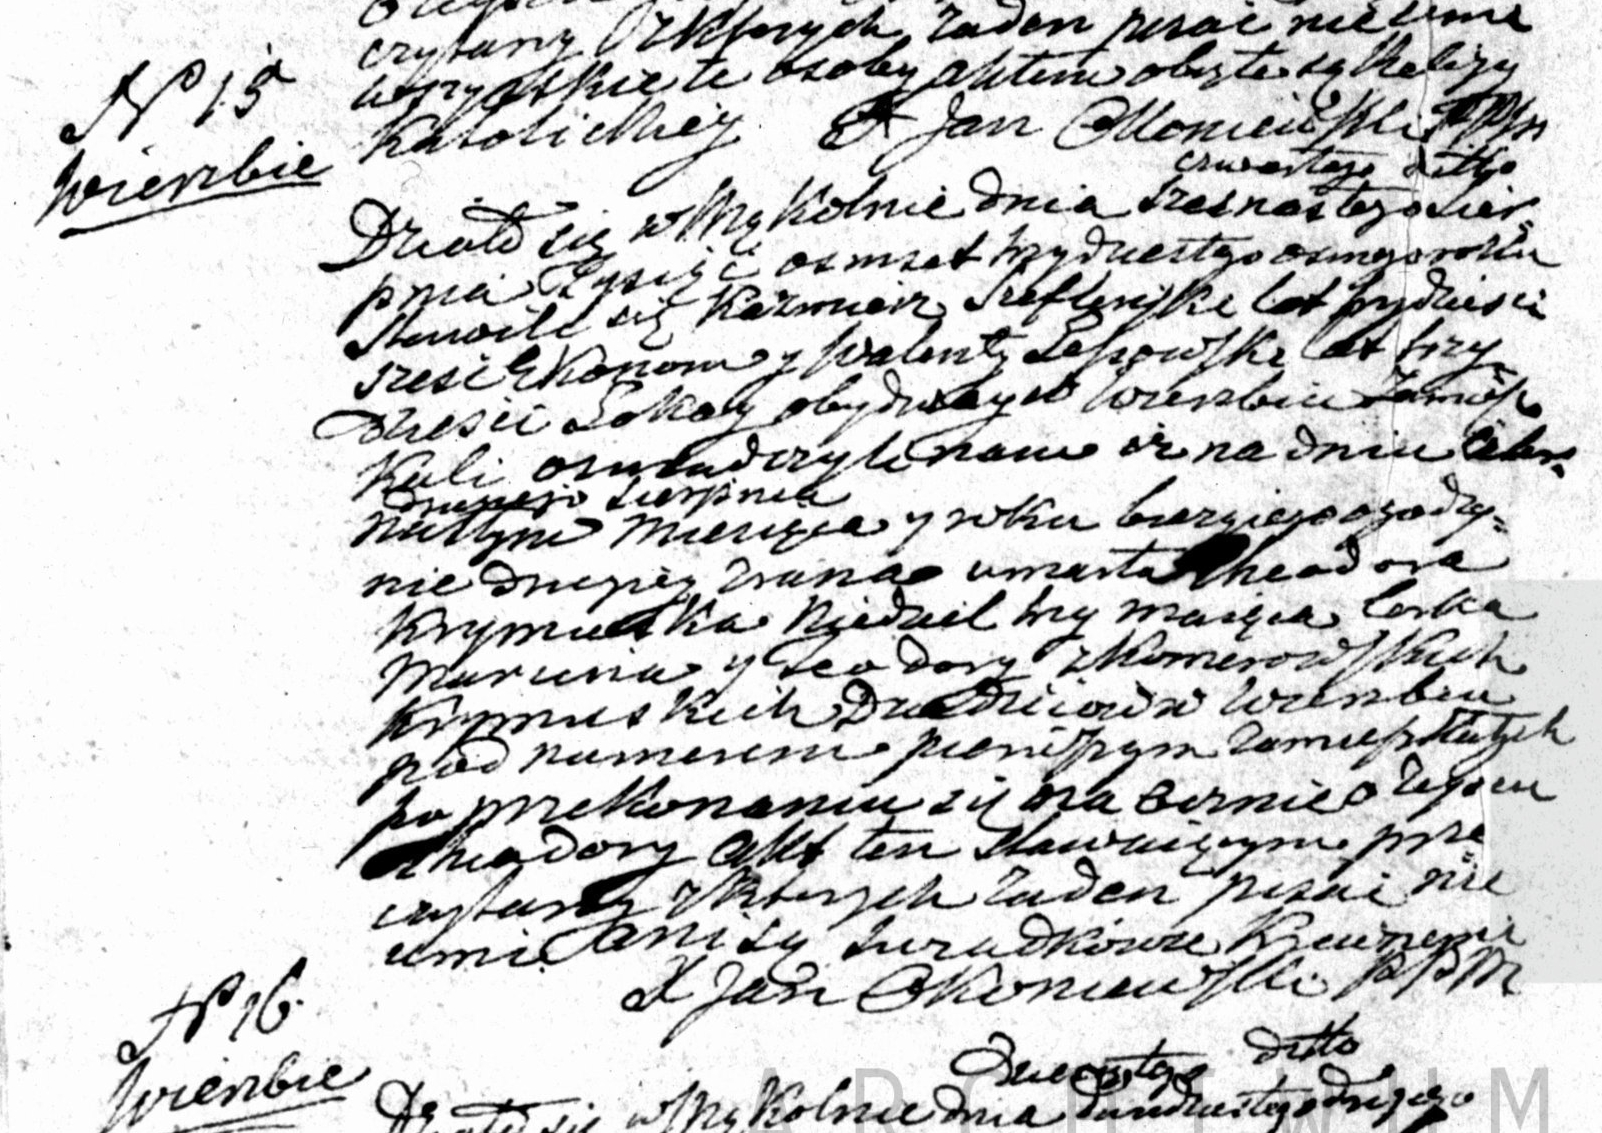 czytany z których żaden pisać nie umie
wszystkie te osoby aktem objęte są Religij
Katolickiey X Jan Okoniewski PPM
N° 15
Wierzbie
czwartego ditto
Działo się w Mąkolnie dnia szesnastego Sier-
pnia Tysiąc osmset trzydziestego osmego roku
Stawili się Kazmierz Szeflerski lat trzydzieści
sześć Ekonom y Walenty Lesiowski lat trzy-
dzieści Lokay obydway w Wierzbiu zamiesz
kali oswiadczyli nam iż na dniu
drugiego sierpnia
miesiąca y roku bieżącego o godzi-
nie drugiey zrana umarła Theodora
Krymuska Niedziel trzy maiąca Corka
Marcina y Teodory z Komerowskich
Krymuskich Dziedziców w Wierzbiu
pod numerem pierwszym zamieszkałych
po przekonaniu się naocznie o zeyściu
Theodory Akt ten Stawaiącym prze
czytany z których żaden pisać nie
umie ani są swiadkowie Krewnemi
X Jan Okoniewski PPM
N° 16
Wierzbie
Dwudziestego ditto
Działo się w Mąkolnie dnia dwudziestego drugiego
ARCHIWUM